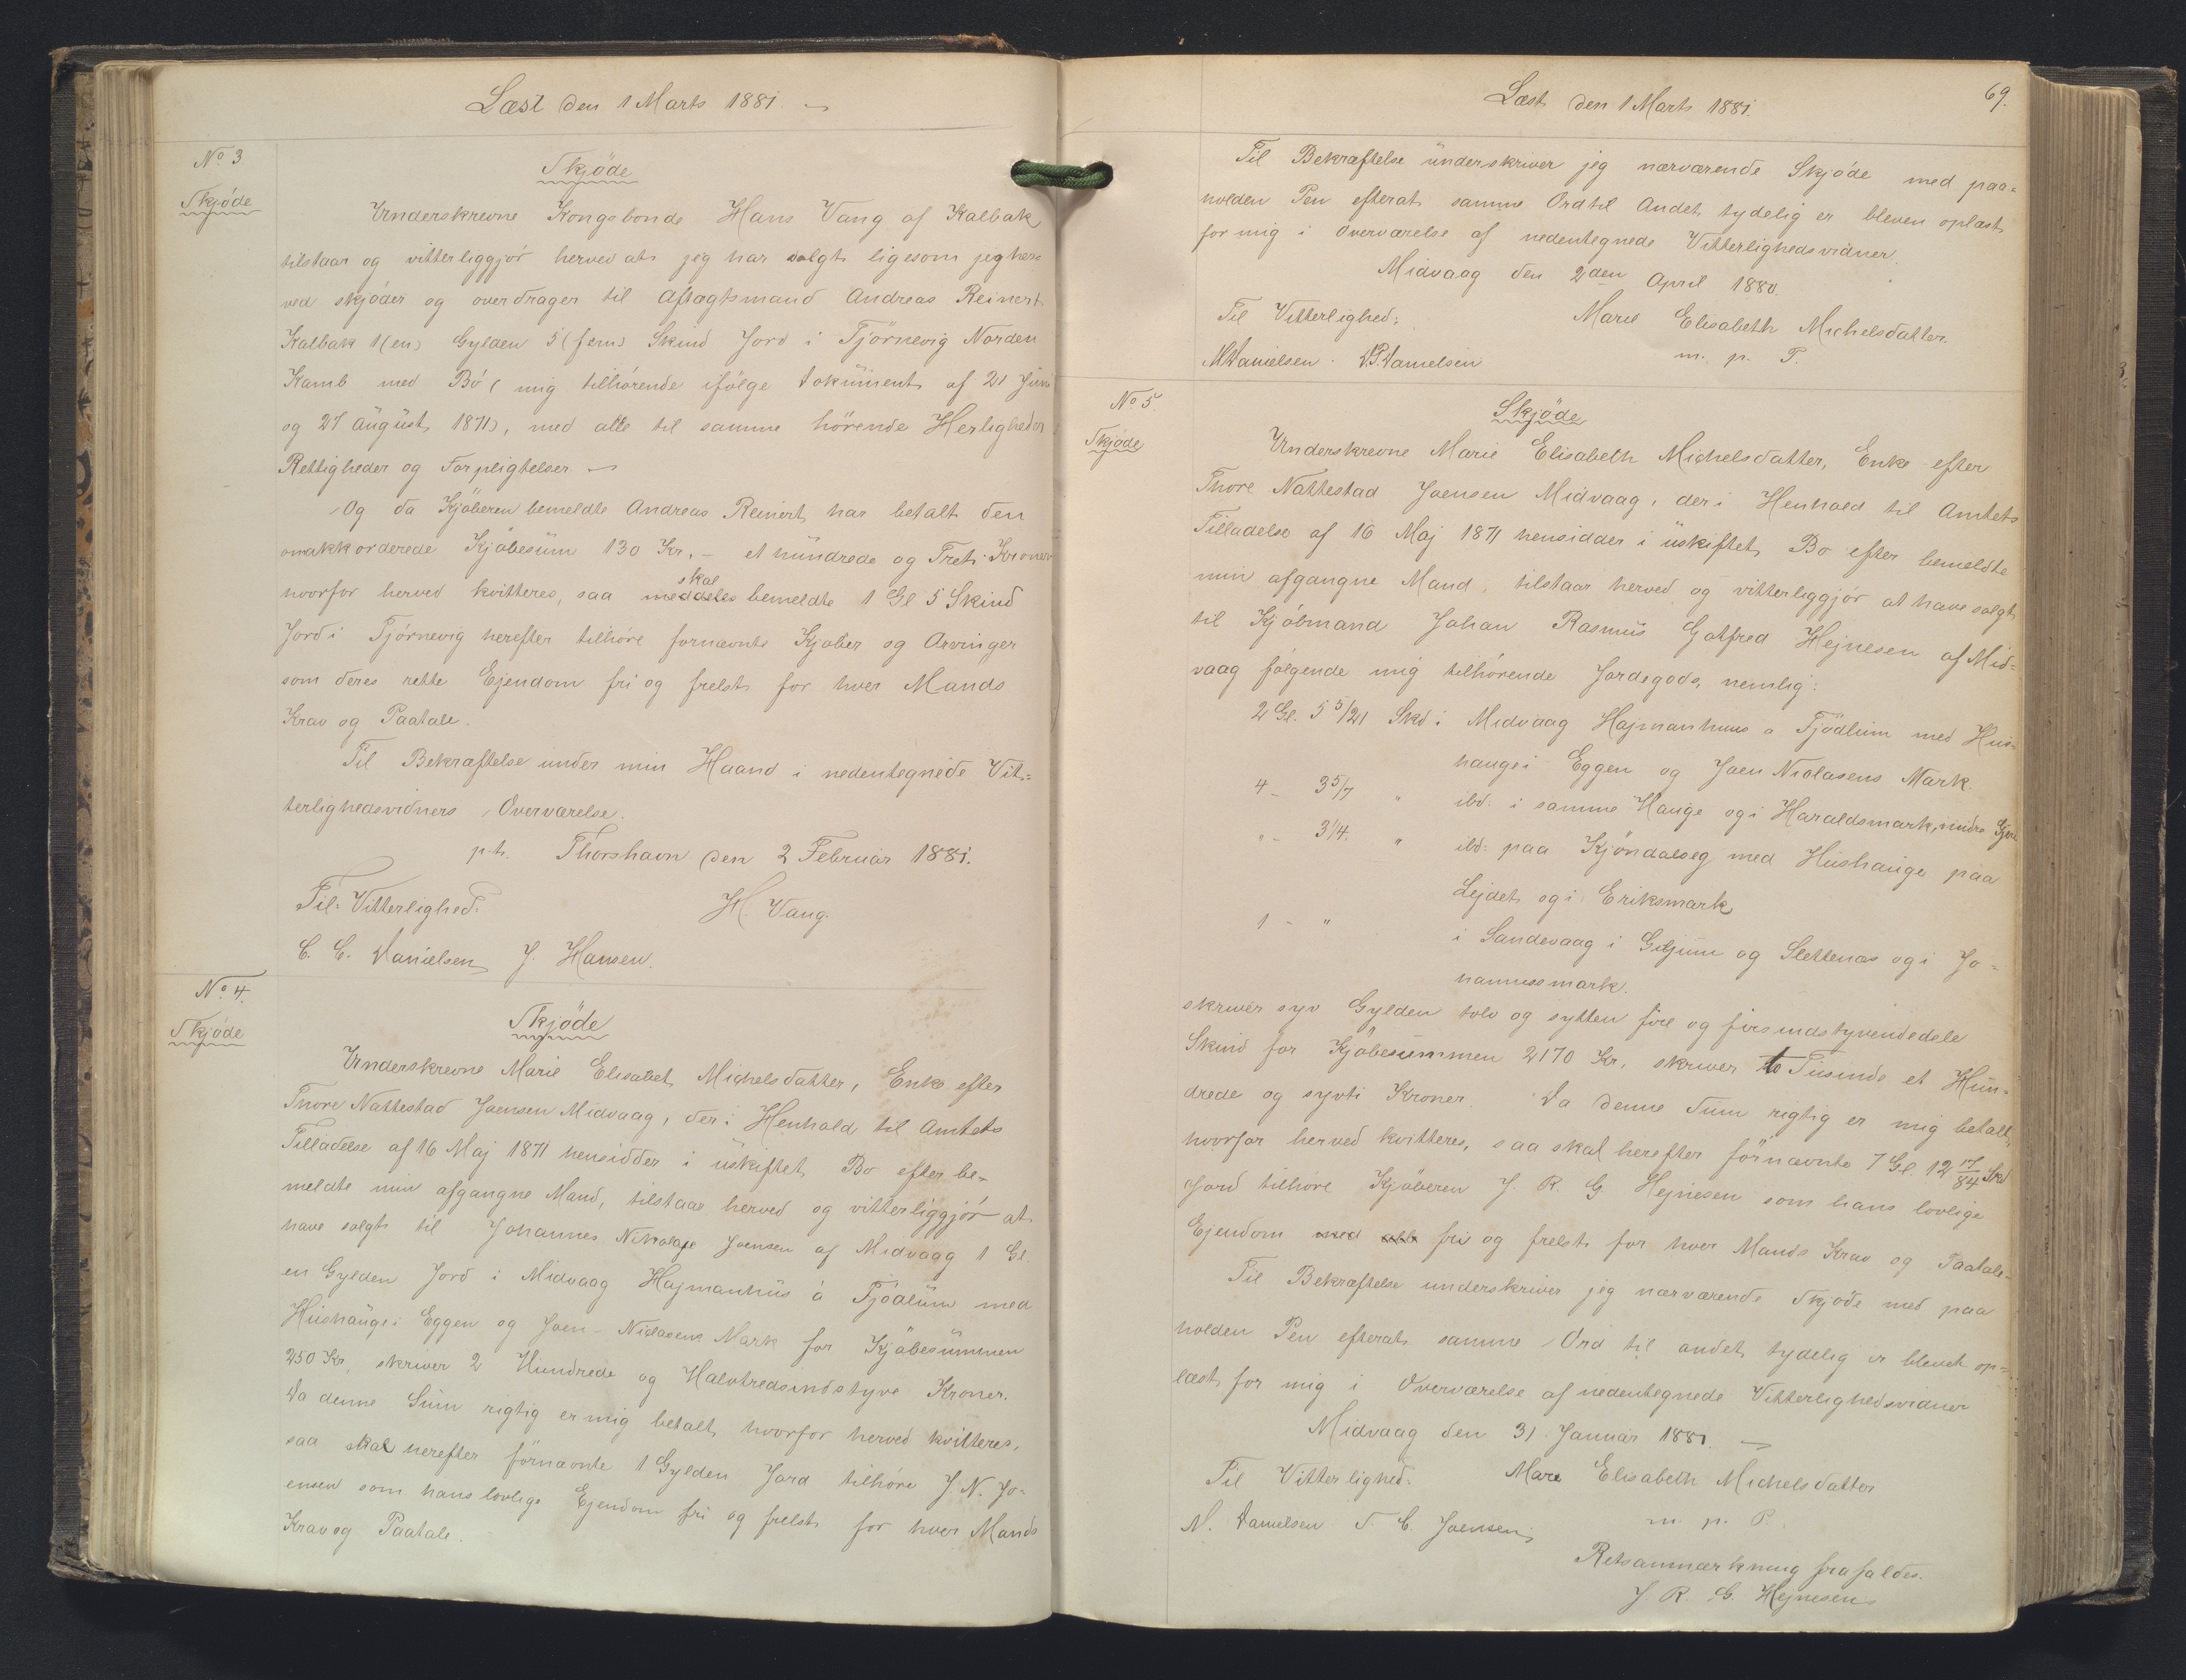 Læst den 1 Marts 1881.
No 3
Skjöde
Skjöde
Underskrevne Kongsbonde Hans Vang af Kalbak
tilstaar og vitterliggjör herved at jeg har solgt ligesom jeg her-
ved skjöder og overdrager til Aftægtsmand Andreas Reinert
Kalbak 1 (en) Gylden 5 (fem) Skind Jord i Tjörnevig Norden
Kamb med Bö (mig tilhörende ifölge Dokument af 21 Juni
og 27 August 1871), med alle til samme hörende Herligheder
Rettigheder og Forpligtelser
Og da Kjöberen bemeldte Andreas Reinert har betalt den
omakkorderede Kjöbesum 130 Kr. – et hundrede og Treti Kroner
hvorfor herved kvitteres, saa skal meddeles bemeldte 1 Gl 5 Skind
Jord i Tjörnevig herefter tilhöre fornævnte Kjöber og Arvinger
som deres rette Ejendom fri og frelst for hver Mands
Krav og Paatale.
Til Bekræftelse under min Haand i nedentegnede Vit-
terlighedsvidners Overværelse.
p.t. Thorshavn den 2 Februar 1881.
Til Vitterlighed: H. Vang.
C. C. Danielsen J. Hansen.
No 4.
Skjöde
Skjöde
Underskrevne Marie Elisabet Michelsdatter, Enke efter
Thore Nattestad Joensen Midvaag, der i Henhold til Amtets
Tilladelse af 16 Maj 1871 hensidder i uskiftet Bo efter be-
meldte min afgangne Mand, tilstaar herved og vitterliggjör at
have solgt til Johannes Nikolaje Joensen af Midvaag 1 Gl.
en Gylden Jord i Midvaag Hajmanhus á Tjödlum med
Hushauge i Eggen og Joen-Niclasens Mark for Kjöbesummen
250 Kr. skriver 2 Hundrede og Halvtredsindstyve Kroner.
Da denne Sum rigtig er mig betalt, hvorfor herved kvitteres,
saa skal herefter fornævnte 1 Gylden Jord tilhöre J. N. Jo-
ensen som hans lovlige Ejendom fri og frelst for hver Mands
Krav og Paatale.
69.
Læst den 1 Marts 1881.
Til Bekræftelse underskriver jeg nærværende Skjöde med paa-
holden Pen efterat samme Ord til Andet tydelig er bleven oplæst
for mig i Overværelse af nedentegnede Vitterlighedsvidner.
Midvaag den 2den April 1880.
Til Vitterlighed: Marie Elisabeth Michelsdatter.
M Danielsen. D.P. Danielsen m. p. P.
No 5
Skjöde
Skjöde
Underskrevne Marie Elisabeth Michelsdatter, Enke efter
Thore Nattestad Joensen Midvaag, der i Henhold til Amtets
Tilladelse af 16 Maj 1871 hensidder i uskiftet Bo efter bemeldte
min afgangne Mand, tilstaar herved og vitterliggjör at have solgt
til Kjöbmand Johan Rasmus Gotfred Hejnesen af Mid-
vaag fölgende mig tilhörende Jordegods, nemlig:
2 Gl. 5 5/21 Skd i Midvaag Hajmanhuus a Tjödlum med Hus-
hauge i Eggen og Joen Niclasens Mark.
4 – 3 5/7 " ibd: i samme Hauge og i Haraldsmark, indre
" – 3 1/4. " ibd: paa Kjöndalseg med Hushauge paa
Lejdet og i Eriksmark
1 – " i Sandevaag i Giljum og Slettenæs og i Jo-
hannesmark.
skriver syv Gylden tolv og sytten fire og firsindstyvendedele
Skind for Kjöbesummen 2170 Kr, skriver to Tusinde et Hun-
drede og syvti Kroner. Da denne Sum rigtig er mig betalt,
hvorfor herved kvitteres, saa skal herefter fornævnte 7 Gl. 12 17/84 Skd
Jord tilhöre Kjöberen J. R. G Hejnesen som hans lovlige
Ejendom med alle fri og frelst for hver Mands Krav og Paatale.
Til Bekræftelse underskriver jeg nærværende Skjöde med paa
holden Pen efterat samme Ord til andet tydelig er blevet op-
læst for mig i Overværelse af nedentegnede Vitterlighedsvidner
Midvaag den 31. Januar 1881.
Til Vitterlighed: Mare Elisabeth Michelsdatter
M. Danielsen J. C. Joensen m. p. P.
Retsanmærkning frafaldes.
J. R. G. Hejnesen